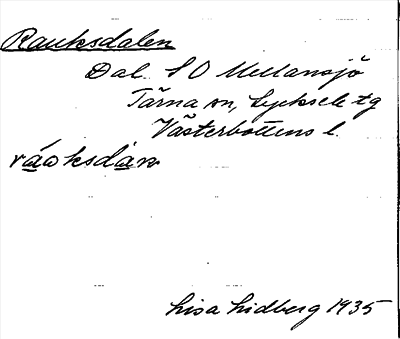 Rauksdalen
Dal. S O Mellansjö
Tärna sn, Lycksele tg
Västerbottens l.
Lisa Lidberg 1935